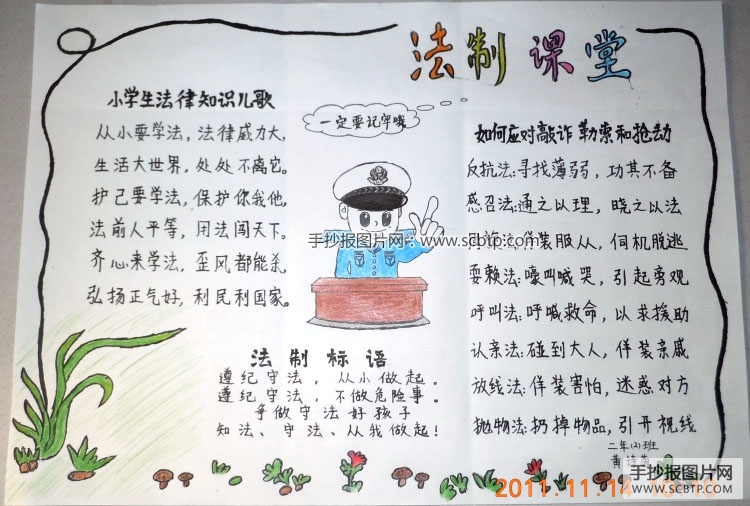 法制课堂
小学生法律知识儿歌
从小要学法，法律威力大。
生活大世界，处处不离它。
护己要学法，保护你我他，
法前人平等，闭法闯天下。
齐心来学法，歪风都能杀，
弘扬正气好，利民利国家。
一定要记牢哦
手抄报图片网：www.scbtp.com
法制标语
遵纪守法，从小做起。
遵纪守法，不做危险事。
争做守法好孩子
知法、守法、从我做起！
如何应对敲诈勒索和抢劫
反抗法：寻找薄弱，功其不备
感召法：通之以理，晓之以法
法：佯装服从，伺机脱逃
耍赖法：嚎叫喊哭，引起旁观
呼叫法：呼喊救命，以求援助
认亲法：碰到大人，佯装亲戚
放线法：佯装害怕，迷惑对方
抛物法：扔掉物品，引开视线
二年(2)班
黄
2011.11.14
手抄报图片网
WWW.SCBTP.COM